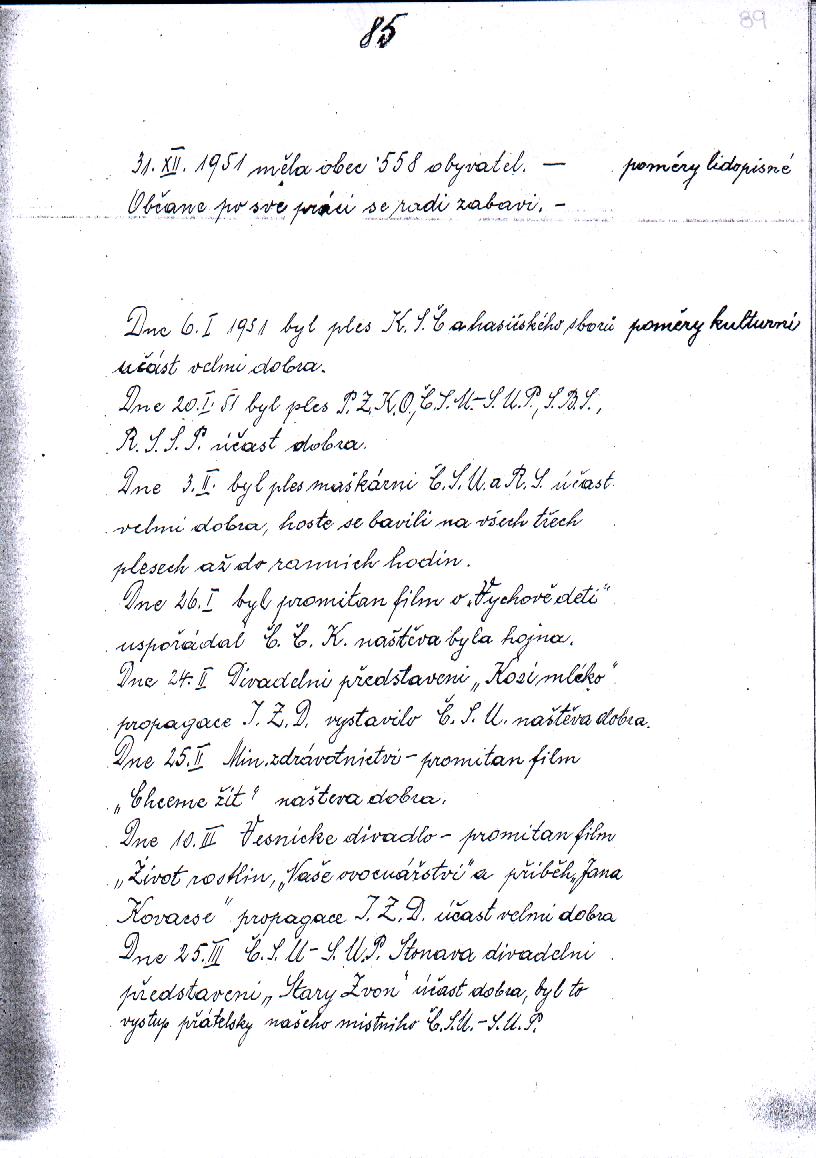 85
89
31. XII. 1951 měla obec 558 obyvatel. — poměry lidopisné
Občane po své práci se radi zabavi. –
Dne 6. I 1951 byl ples K.S.Č a hasičského sborů poměry kulturní
účást velmi dobra.
Dne 20. I. 51 byl ples P.Z.K.O., Č.S.M.–S.M.P., S.B.S.,
R.S.S.P. účast dobra.
Dne 3. II. byl ples maškárni Č.S.M. a R.S. účast
velmi dobra, hoste se bavili na všech třech
plesech až do rannich hodin.
Dne 26. I byl promitan film o „Vychově deti"
uspořádal Č.Č.K. naštěva byla hojna.
Dne 24. II Divadelni představeni „Kozi mléko"
propagace J.Z.D. vystavilo Č.S.M. naštěva dobra.
Dne 25. II Min. zdrávotnictvi – promitan film
„Chceme žít" našteva dobra.
Dne 10. III Vesnicke divadlo – promitan film
„Život rostlin, „Naše ovocnářství" a příběh „Jana
Kovacse" propagace J.Z.D. účast velmi dobra
Dne 25. III Č.S.M – S.M.P. Stonava divadelni
představeni „Stary Zvon" účast dobra, byl to
vystup přátelsky našeho mistniho Č.S.M.–S.M.P.